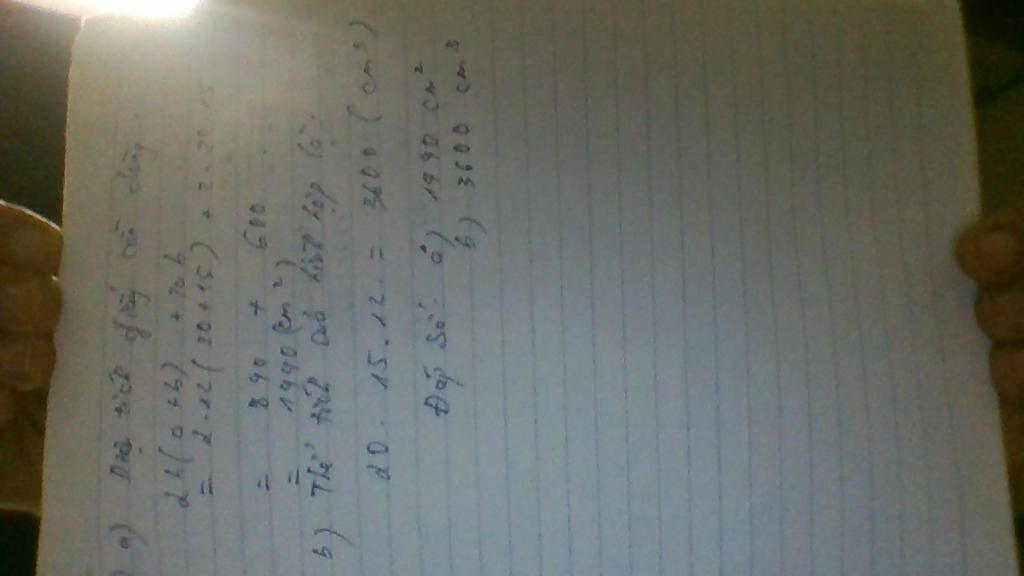 a) Diện tích giấy cần dùng.
2h(a+b) + 2ab
= 2.12(20+15) + 2.20.15
= 890 + 600
= 1990 (cm²)
b) Thể tích của hình hộp là.
20.15.12. = 3600 (cm³)
Đáp số: a) 1990 cm²
b) 3600 cm³